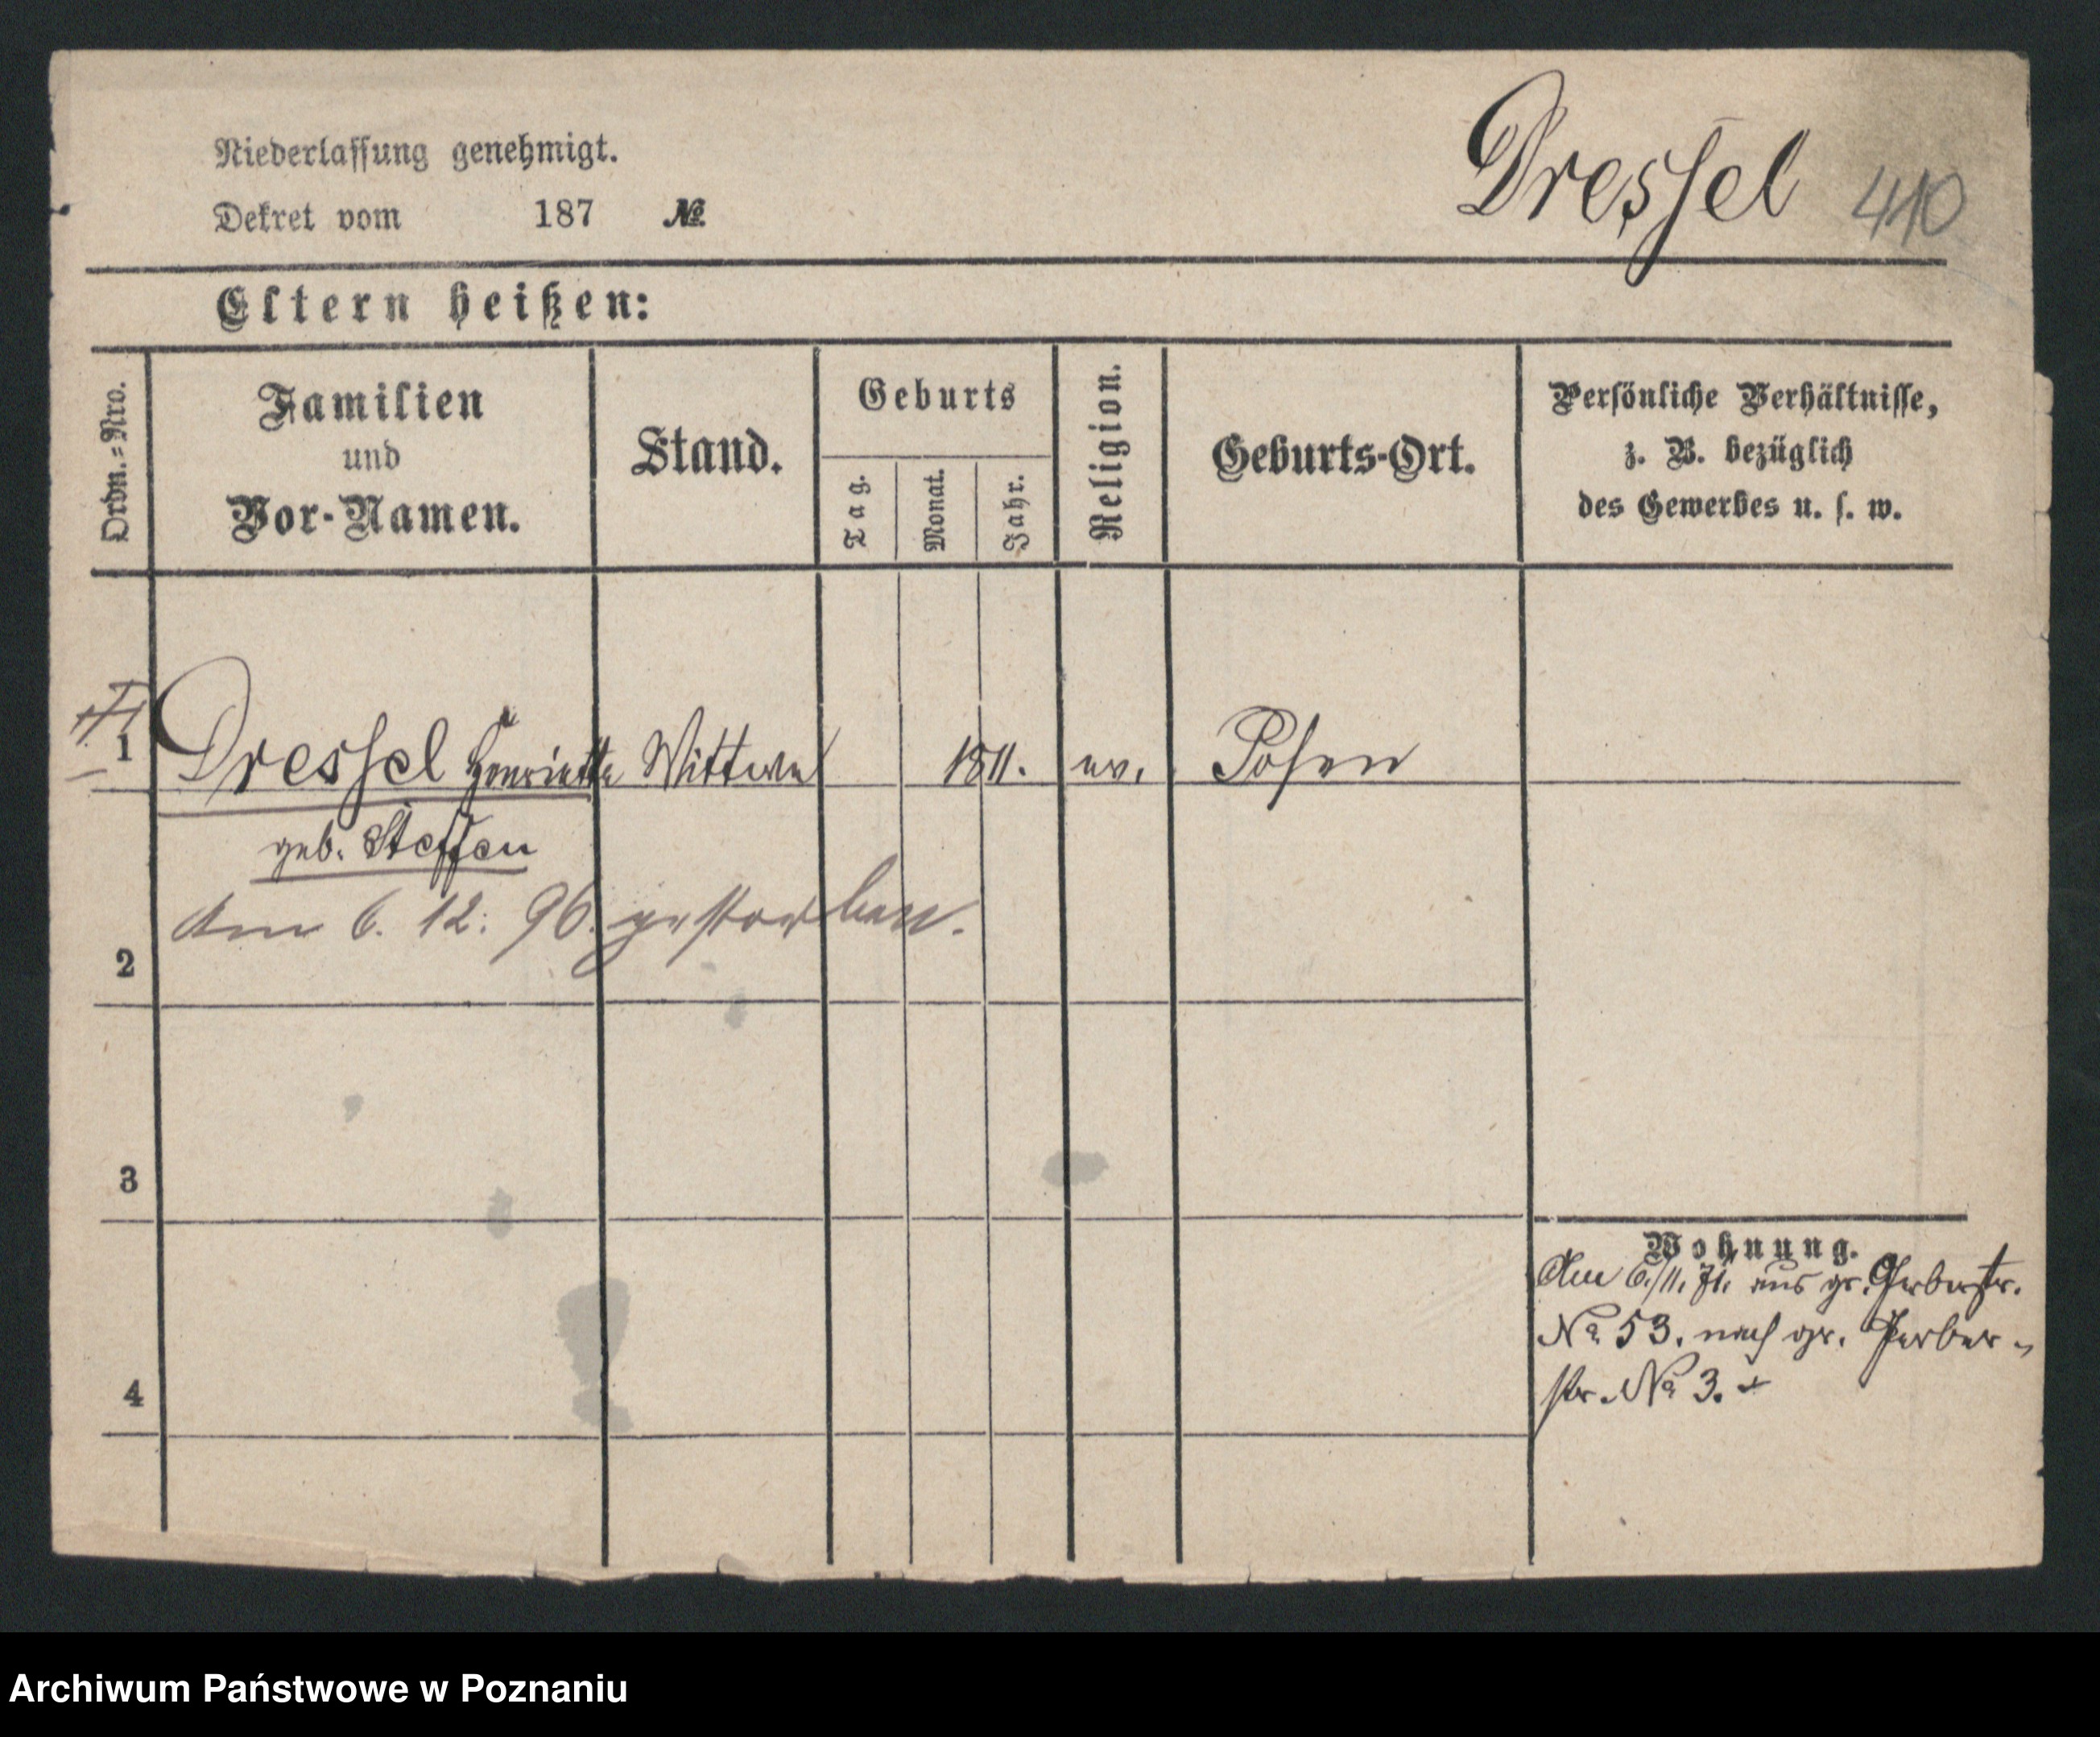 Niederlassung genehmigt.
Dekret vom 187 №
Dressel 410
Eltern heißen:
Ordn.-Nro.
Familien
und
Vor-Namen.
Stand.
Geburts
Tag.
Monat.
Jahr.
Religion.
Geburts-Ort.
Persönliche Verhältnisse,
z. B. bezüglich
des Gewerbes u. s. w.
1 Dressel Henriette Wittwe 1811. ev. Posen
geb. Steffen
am 6. 12. 96. gestorben.
2
3
4
Wohnung.
Am 6./11. 71. aus gr. Gerberstr.
No 53. nach gr. Gerber-
str. No 3.
Archiwum Państwowe w Poznaniu